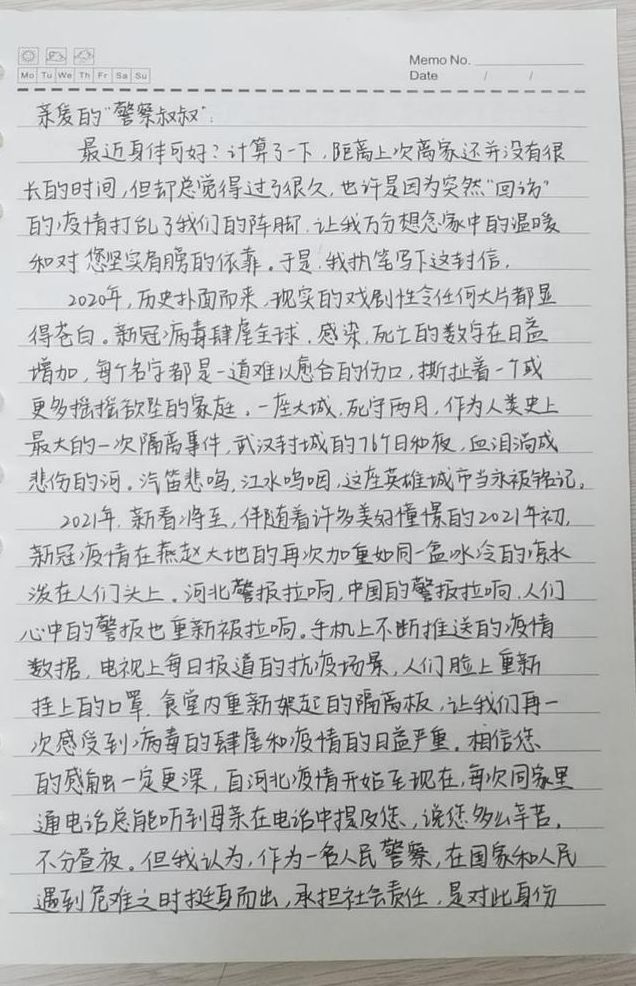 Memo No.
Mo Tu We Th Fr Sa Su
Date / /
亲爱的“警察叔叔”:
最近身体可好?计算了一下,距离上次离家还并没有很
长的时间,但却总觉得过了很久,也许是因为突然“回访”
的疫情打乱了我们的阵脚,让我万分想念家中的温暖
和对您坚实肩膀的依靠。于是,我执笔写下这封信。
2020年,历史扑面而来,现实的戏剧性令任何大片都显
得苍白。新冠病毒肆虐全球,感染,死亡的数字在日益
增加,每个名字都是一道难以愈合的伤口,撕扯着一个或
更多摇摇欲坠的家庭。一座大城,死守两月,作为人类史上
最大的一次隔离事件,武汉封城的76个日和夜,血泪淌成
悲伤的河。汽笛悲鸣,江水呜咽,这座英雄城市当永被铭记。
2021年,新春将至,伴随着许多美好憧憬的2021年初,
新冠疫情在燕赵大地的再次加重如同一盆冰冷的凉水
泼在人们头上。河北警报拉响,中国的警报拉响,人们
心中的警报也重新被拉响。手机上不断推送的疫情
数据,电视上每日报道的抗疫场景,人们脸上重新
挂上的口罩,食堂内重新架起的隔离板,让我们再一
次感受到病毒的肆虐和疫情的日益严重。相信您
的感触一定更深,自河北疫情开始至现在,每次同家里
通电话总能听到母亲在电话中提及您,说您多么辛苦,
不分昼夜。但我认为,作为一名人民警察,在国家和人民
遇到危难之时挺身而出,承担社会责任,是对此身份